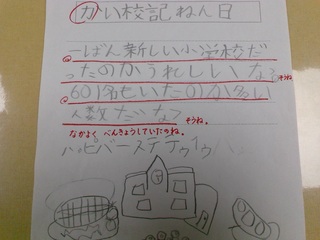 かい校記ねん日
一ばん新しい小学校だ
ったのがうれしいな。そうね。
601名もいたのが多い
人数だなっ そうね。
なかよく べんきょうしていたのね。
ハッピバースデー